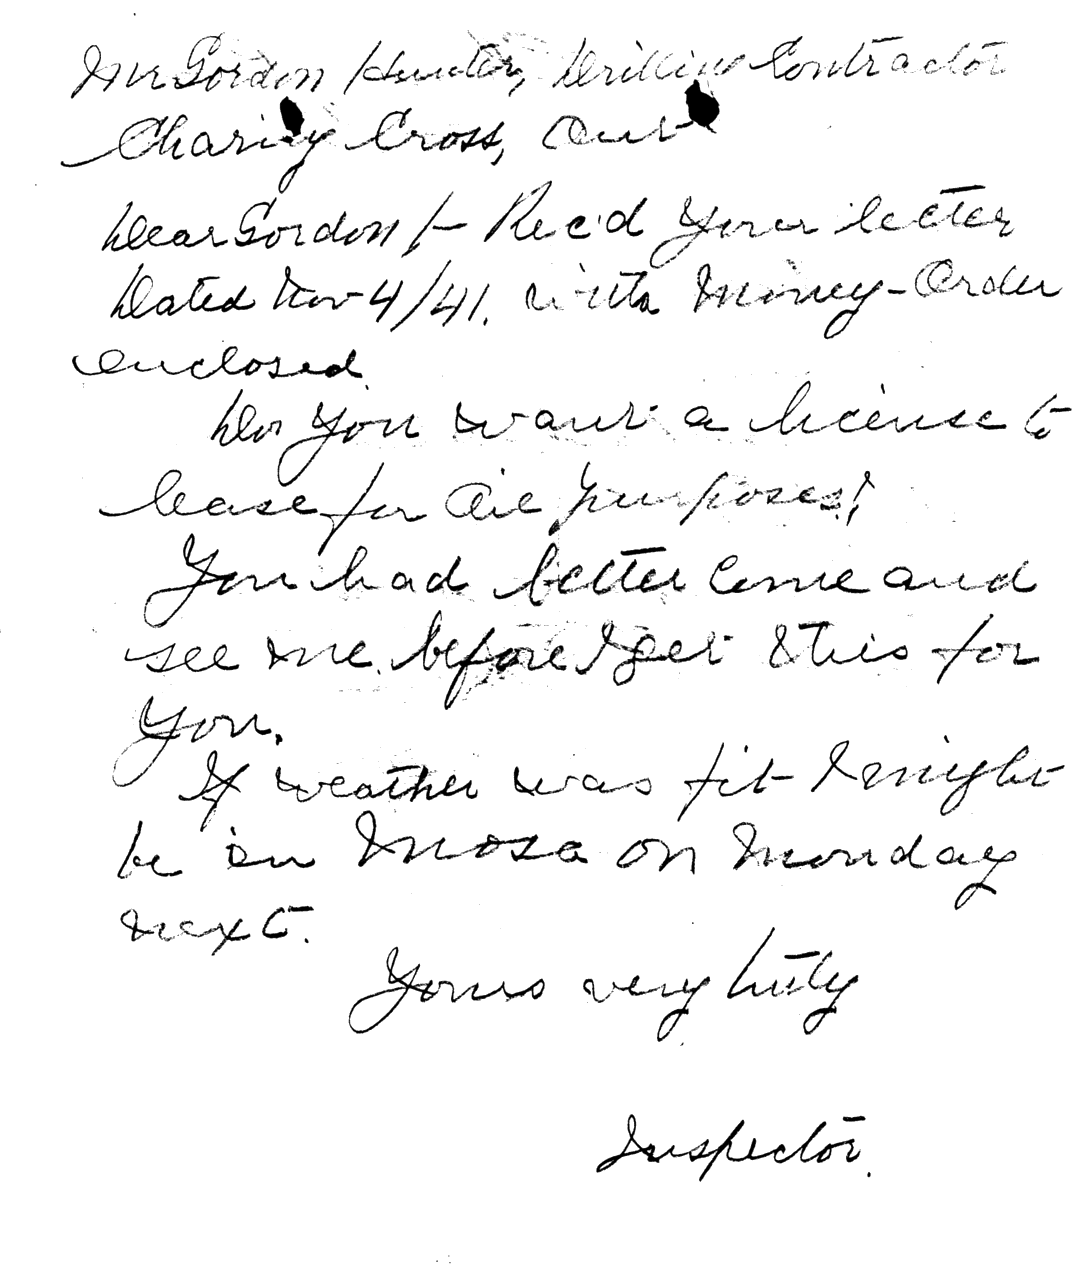 Mr Gordon Hunter, Drilling Contractor
Charing Cross, Ont
Dear Gordon/- Rec'd your letter
Dated Nov 4/41. with Money-Order
enclosed.
Do you want a license to
lease for Oil purposes?
You had better come and
see me before I get this for
you.
If weather was fit I might
be in Mosa on Monday
next.
Yours very truly
Inspector.